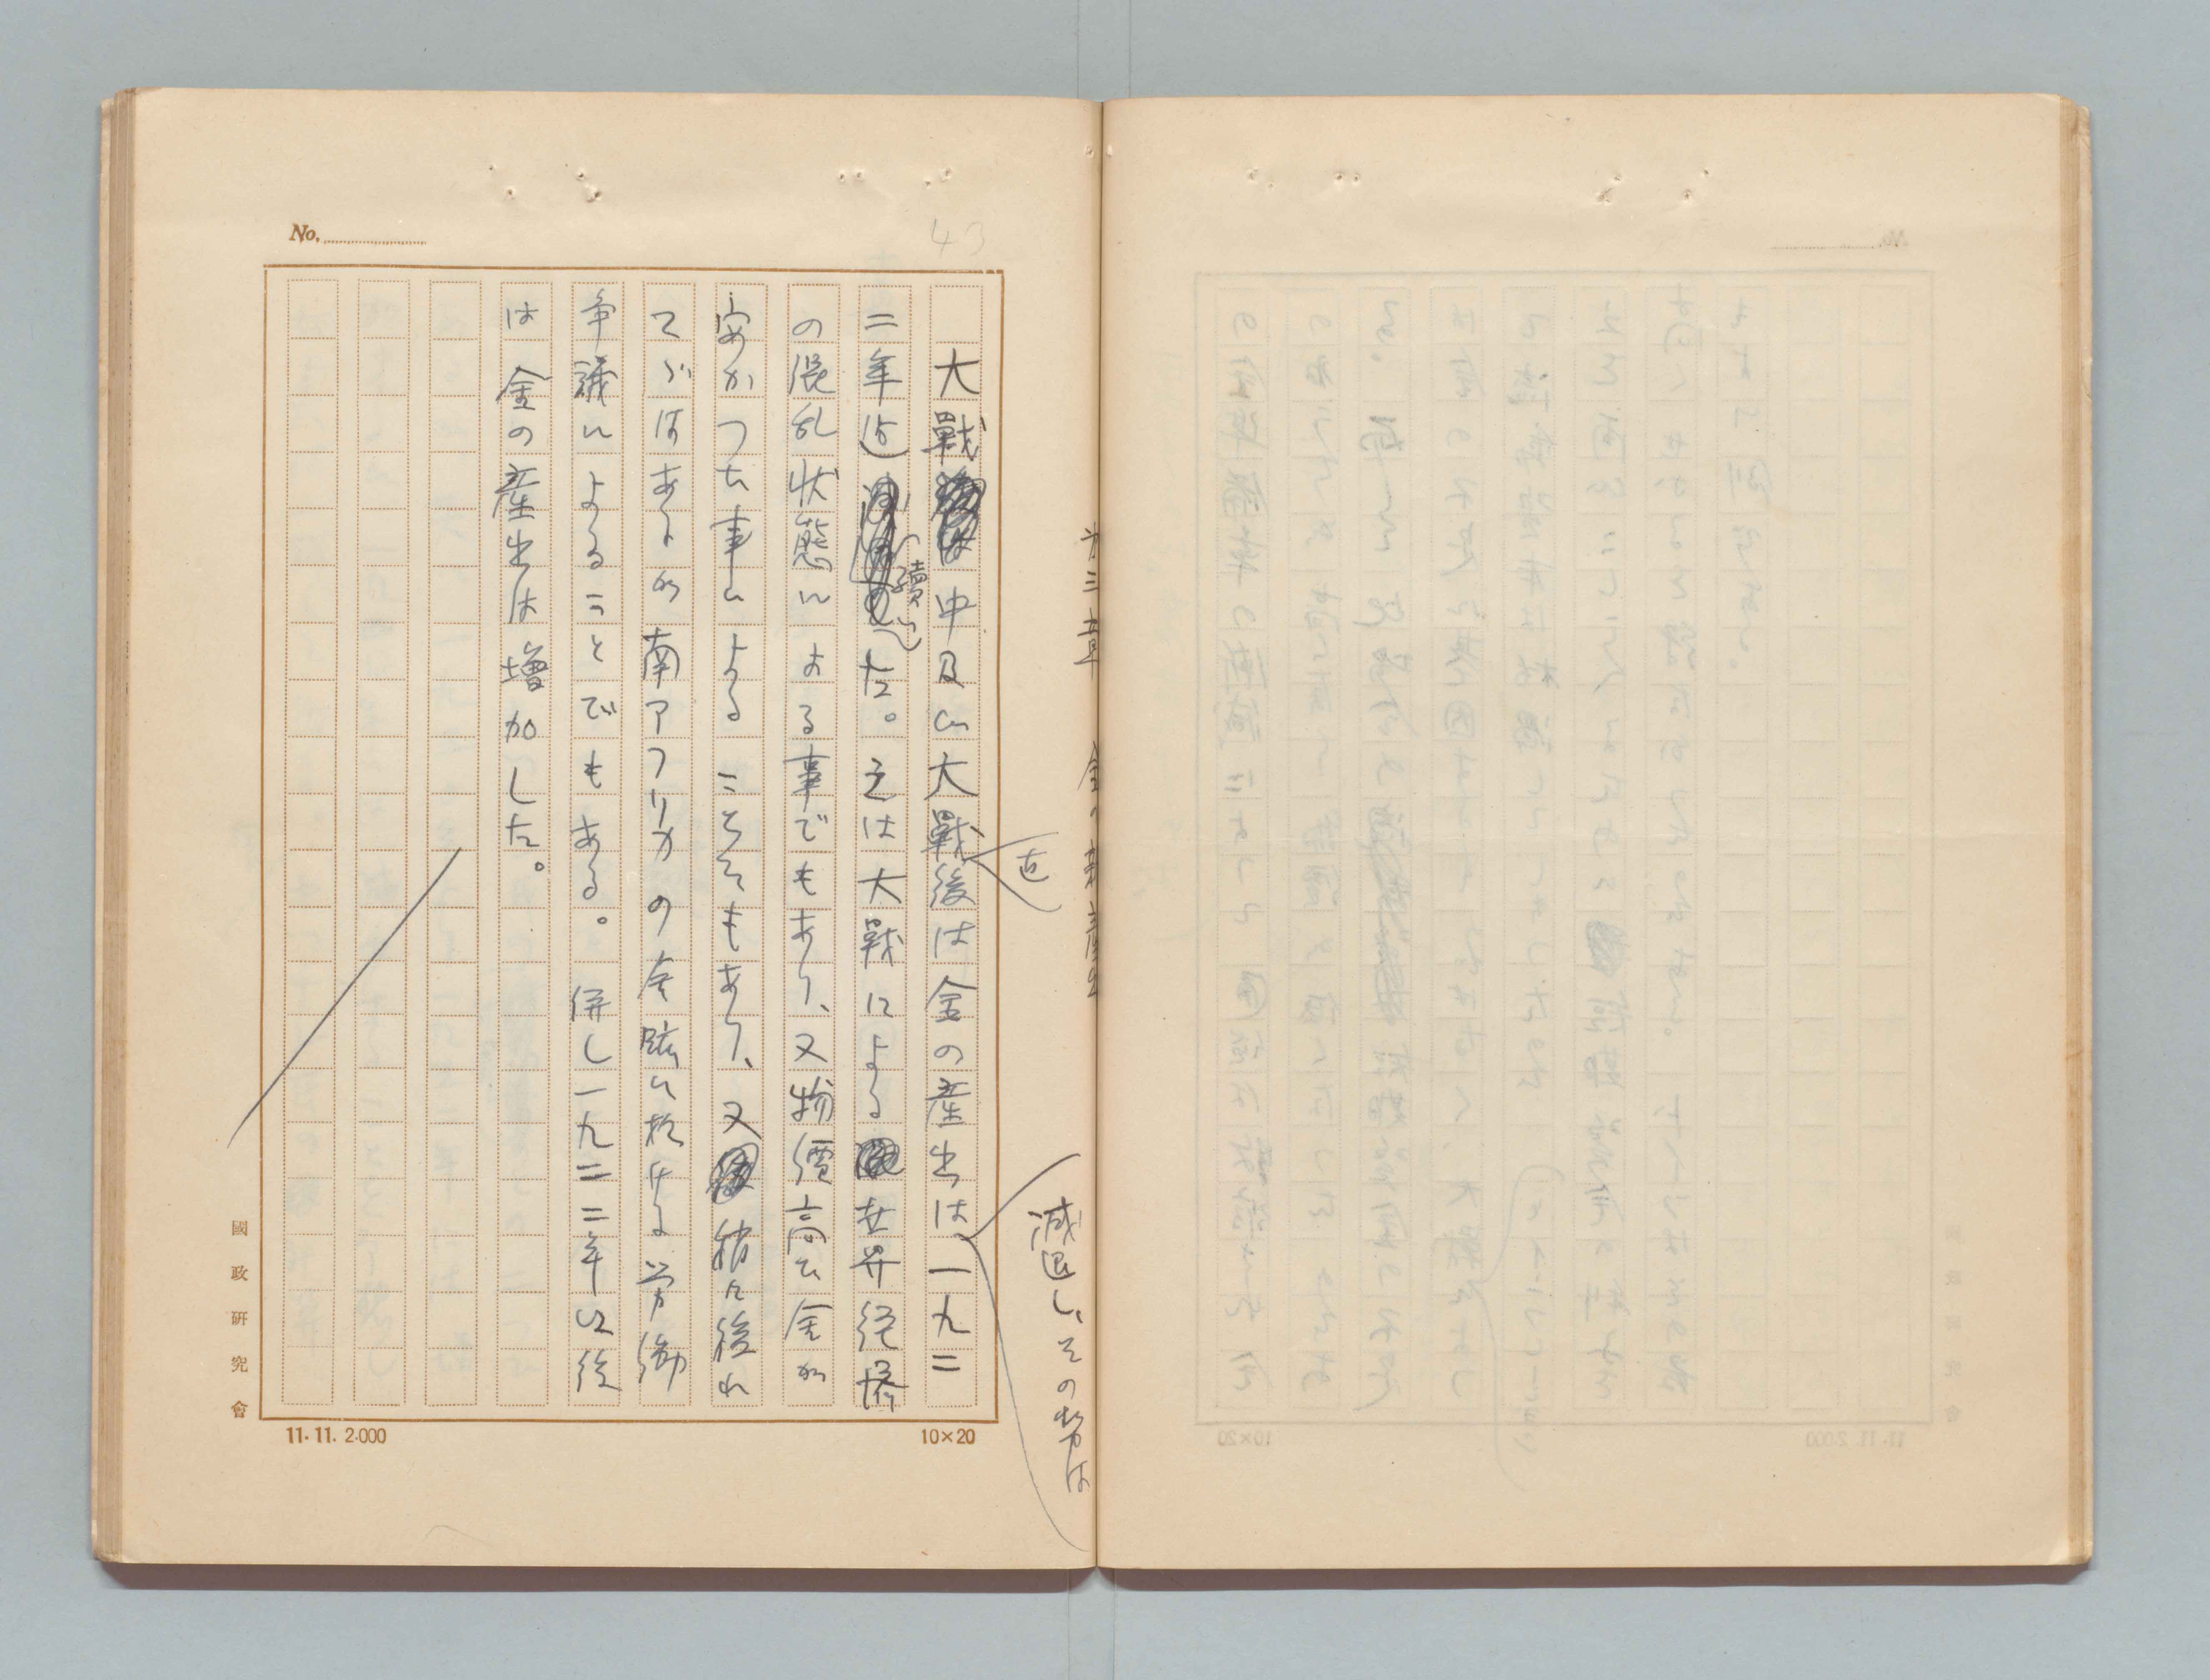 43
No.
第三章 金の新産出
大戰中及び大戰直後は金の産出は減退し、その勢は一九二
二年迄續いた。之は大戰による世界経済
の混乱状態による事でもあり、又物價高で金が
安かつた事によることでもあり、又稍々後れ
てゞはあるが南アフリカの金鉱に於ける労働
争議によることでもある。併し一九二二年以後
は金の産出は増加した。
國政研究會
11.11.2.000
10×20